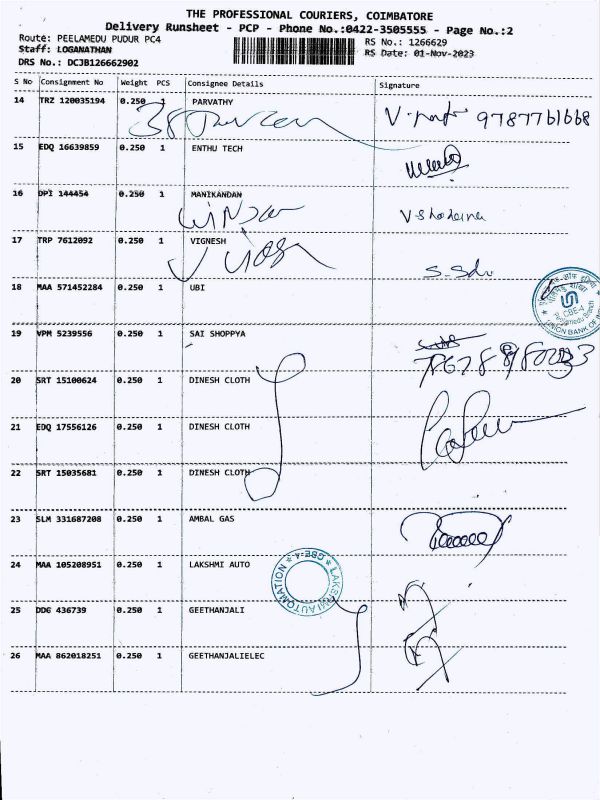 THE PROFESSIONAL COURIERS, COIMBATORE
Delivery Runsheet - PCP - Phone No.:0422-3505555 - Page No.:2
Route: PEELAMEDU PUDUR PC4
RS No.: 1266629
Staff: LOGANATHAN
RS Date: 01-Nov-2023
DRS No.: DCJB126662902
S No Consignment No Weight PCS Consignee Details Signature
14 TRZ 120035194 0.250 1 PARVATHY
9787761668
15 EDQ 16639859 0.250 1 ENTHU TECH
16 DPI 144454 0.250 1 MANIKANDAN
17 TRP 7612092 0.250 1 VIGNESH
18 MAA 571452284 0.250 1 UBI
CBE-4
Peelamedu Branch
UNION BANK OF
19 VPM 5239556 0.250 1 SAI SHOPPYA
20 SRT 15100624 0.250 1 DINESH CLOTH
21 EDQ 17556126 0.250 1 DINESH CLOTH
22 SRT 15035681 0.250 1 DINESH CLOTH
23 SLM 331687208 0.250 1 AMBAL GAS
24 MAA 105208951 0.250 1 LAKSHMI AUTO
LAKSHMI AUTOMATION
CBE-4
25 DDG 436739 0.250 1 GEETHANJALI
26 MAA 862018251 0.250 1 GEETHANJALIELEC